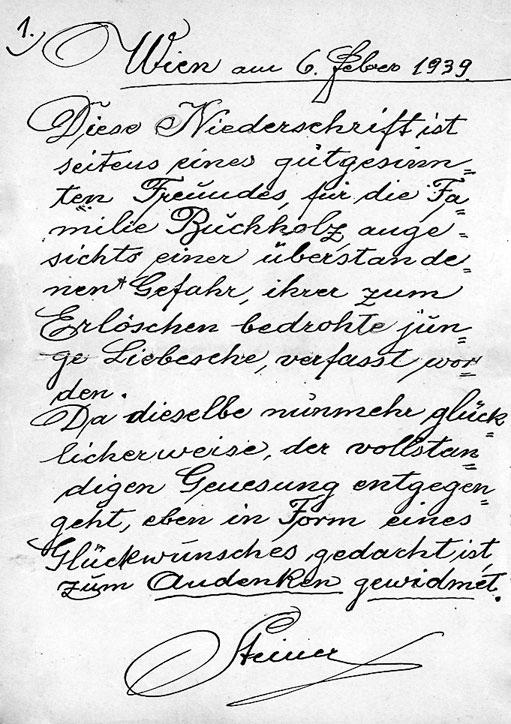 1.
Wien am 6. Feber 1939.
Diese Niederschrift ist
seitens eines gutgesinn=
ten Freundes, für die Fa=
milie Buchholz, ange=
sichts einer überstande=
nen Gefahr, ihrer zum
Erlöschen bedrohte jun=
ge Liebesehe, verfasst wor=
den.
Da dieselbe nunmehr glück=
licherweise, der vollstän=
digen Genesung entgegen=
geht, eben in Form eines
Glückwunsches, gedacht ist,
zum Andenken gewidmet.
Steiner